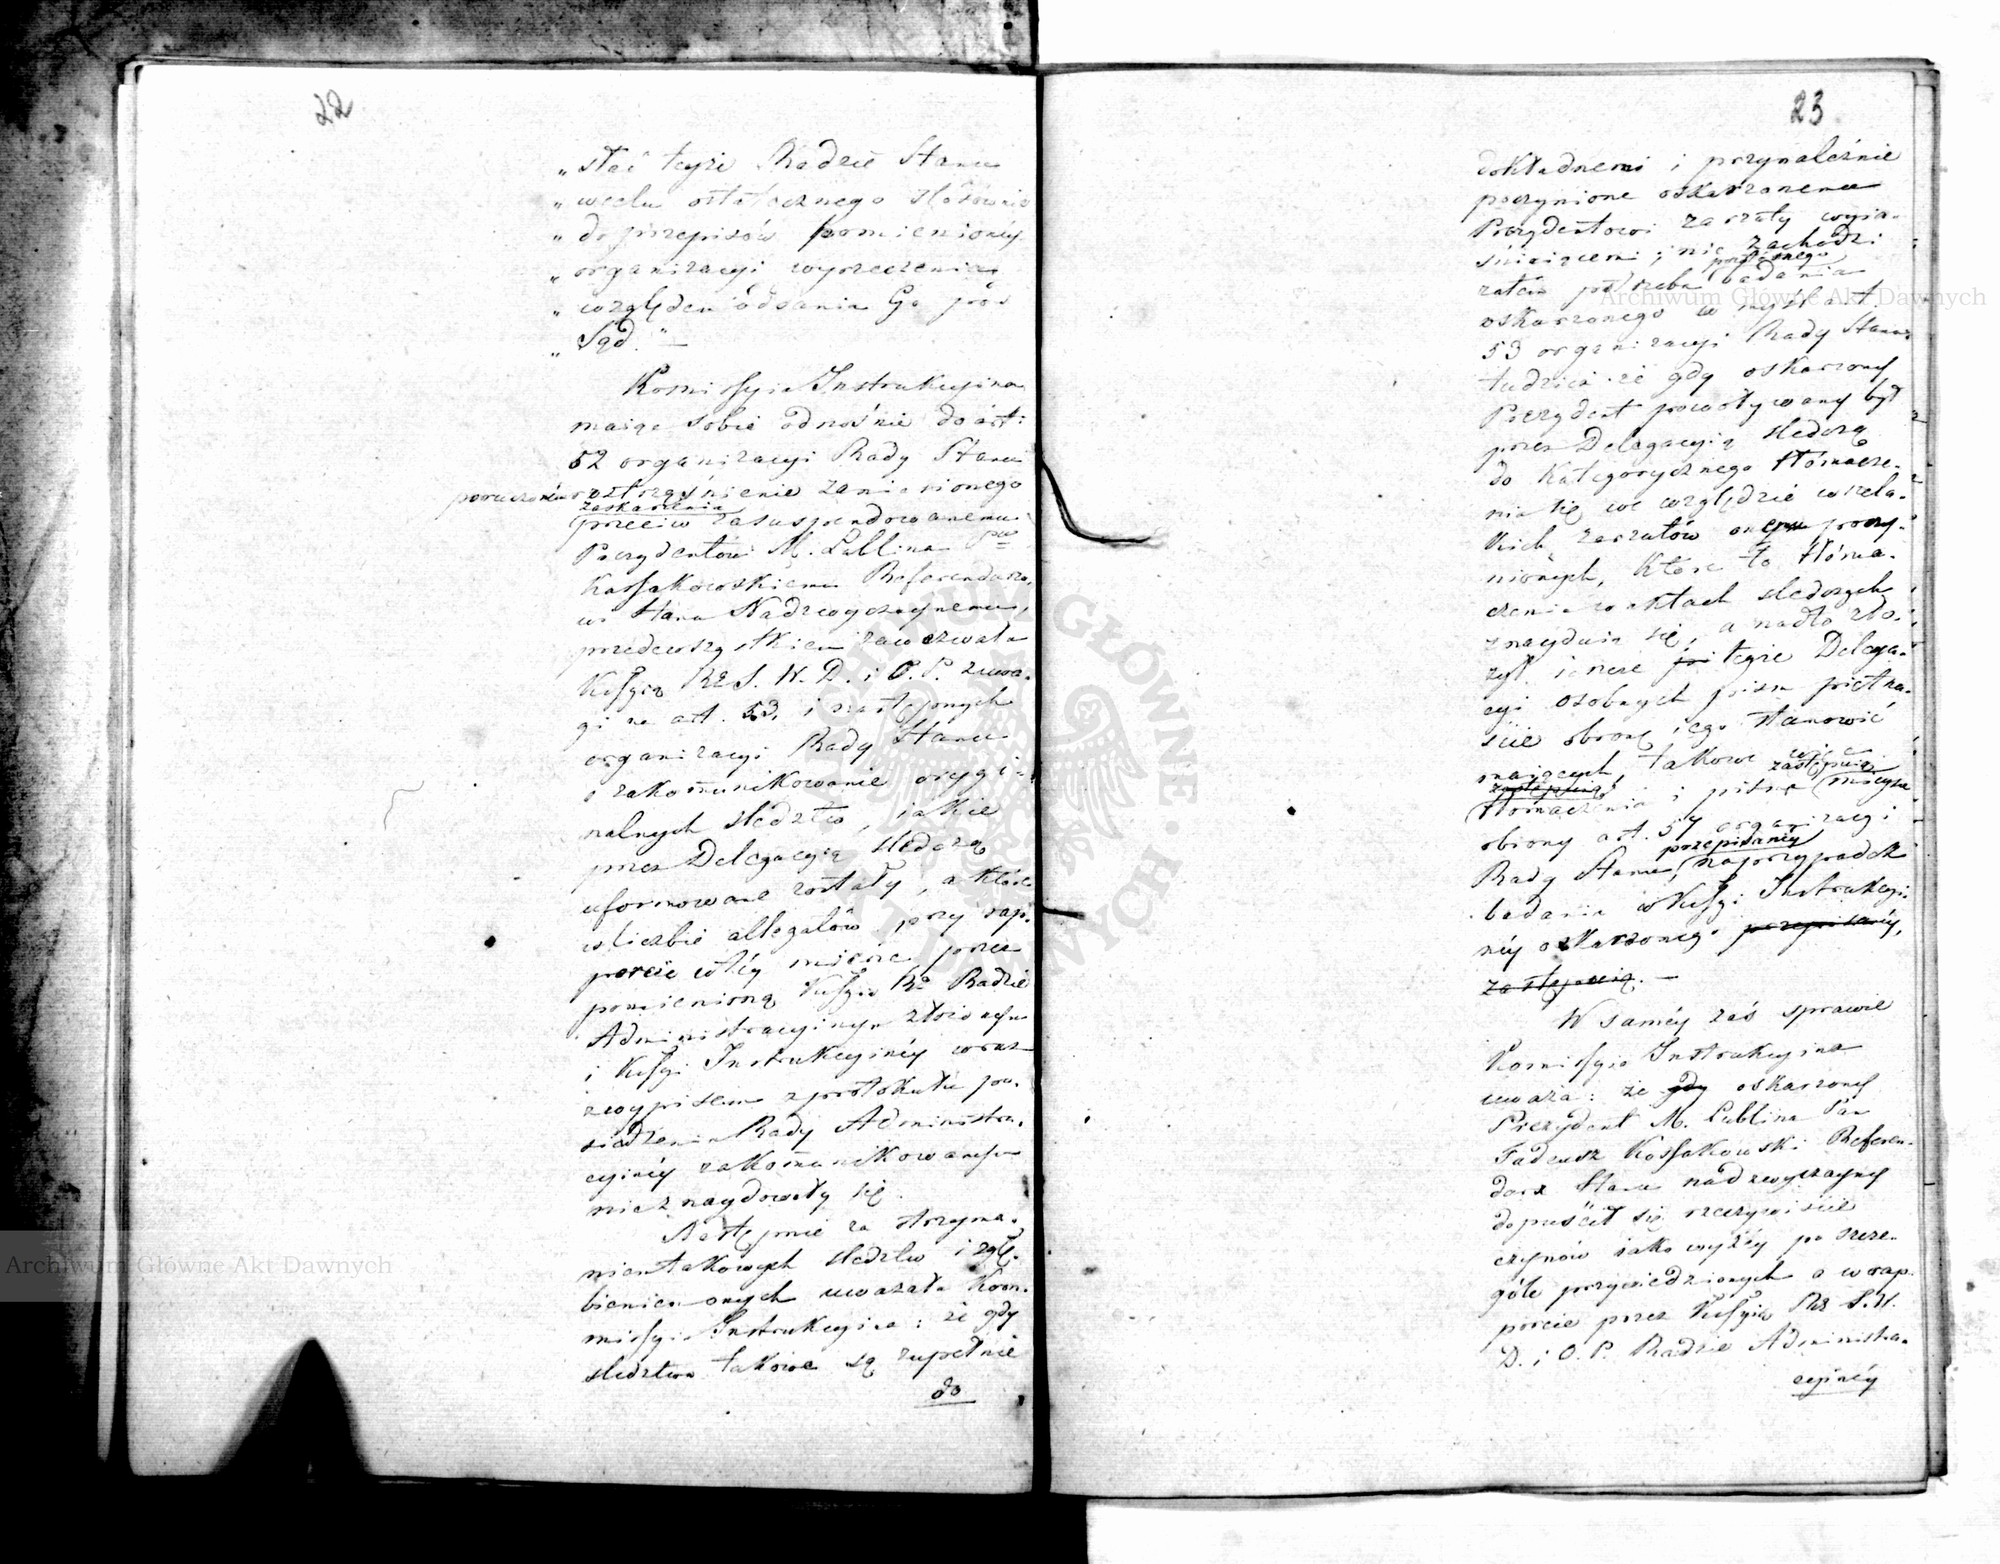 22
„ słać teyże Radzie Stanu
„ wcelu ostatecznego stósownie
„ do przepisów pomienionéy
„ organizacyi wyrzeczenia
„ względem oddania Go pod
„ Sąd." —
Kommissyia Instrukcyina
maiąc sobie odnośnie do art:
52 organizacyi Rady Stanu
poruczone roztrząśnienie zaniesionego
zaskarżenia
przeciw zasuspendowanemu
Prezydentowi M. Lublina
Kossakowskiemu Referendarzo,
wi Stanu Nadzwyczaynemu,
przedewszystkiem zawezwała
Kssyią Rz. S. W. D. i O. P. zuwa,
gi na art. 53. i następnych
organizacyi Rady Stanu
o zakommunikowanie orygi,
nalnych śledztw, iakie
przez Delegacyią śledczą
uformowane zostały, a które
wliczbie allegatów przy rap,
porcie wtéy mierze przez
pomienioną Kssyią Rz. Radzie
Administracyinéy złożonym
i Kssyi Instrukcyinéy wraz
zwypisem zprotokułu po,
siedzenia Rady Administra,
cyinéy zakommunikowanym
nieznaydowały się.
Następnie za otrzyma,
niem takowych śledztw i zgłę,
bieniem onych uważała Kom,
missyia Instrukcyina: że gdy
śledztwa takowe są zupełnie
do
23
dokładnemi i przynależnie
poczynione oskarżonemu
Prezydentowi zarzuty wyia,
śniaiącemi; nie zachodzi
zatem potrzeba badania
oskarżonego w myśl art.
53 organizacyi Rady Stanu
tudzież że gdy oskarżony
Prezydent powoływany był
przez Delegacyią śledczą
do kategorycznego tłómacze,
nia się we względzie wszela,
kich zarzutów onemu poczy,
nionych, które to tłóma,
czenia w aktach śledczych
znayduią się, a nadto zło,
żył ieszcze teyże Delega,
cyi osobnych pism piętna,
ście obronę iego stanowić
maiących, takowe więc
zastępuią
zastępuią
tłómaczenia i pisma mieysce
obrony art. 54 organizacyi
przepisanéy
Rady Stanu, naprzypadek
badania w Kssyi Instrukcyi,
néy oskarżonego przepisanéy,
zastępuią. —
W saméy zaś sprawie
Kommissyia Instrukcyina
uważa: że gdy oskarżony
Prezydent M. Lublina Pan
Tadeusz Kossakowski Referen,
darz Stanu nadzwyczayny
dopuścił się rzeczywiście
czynów iako wyżéy po szcze,
góle przywiedzionych a w rap,
porcie przez Kssyią Rz. S. W.
D. i O. P. Radzie Administra,
cyinéy
Archiwum Główne Akt Dawnych
Archiwum Główne Akt Dawnych